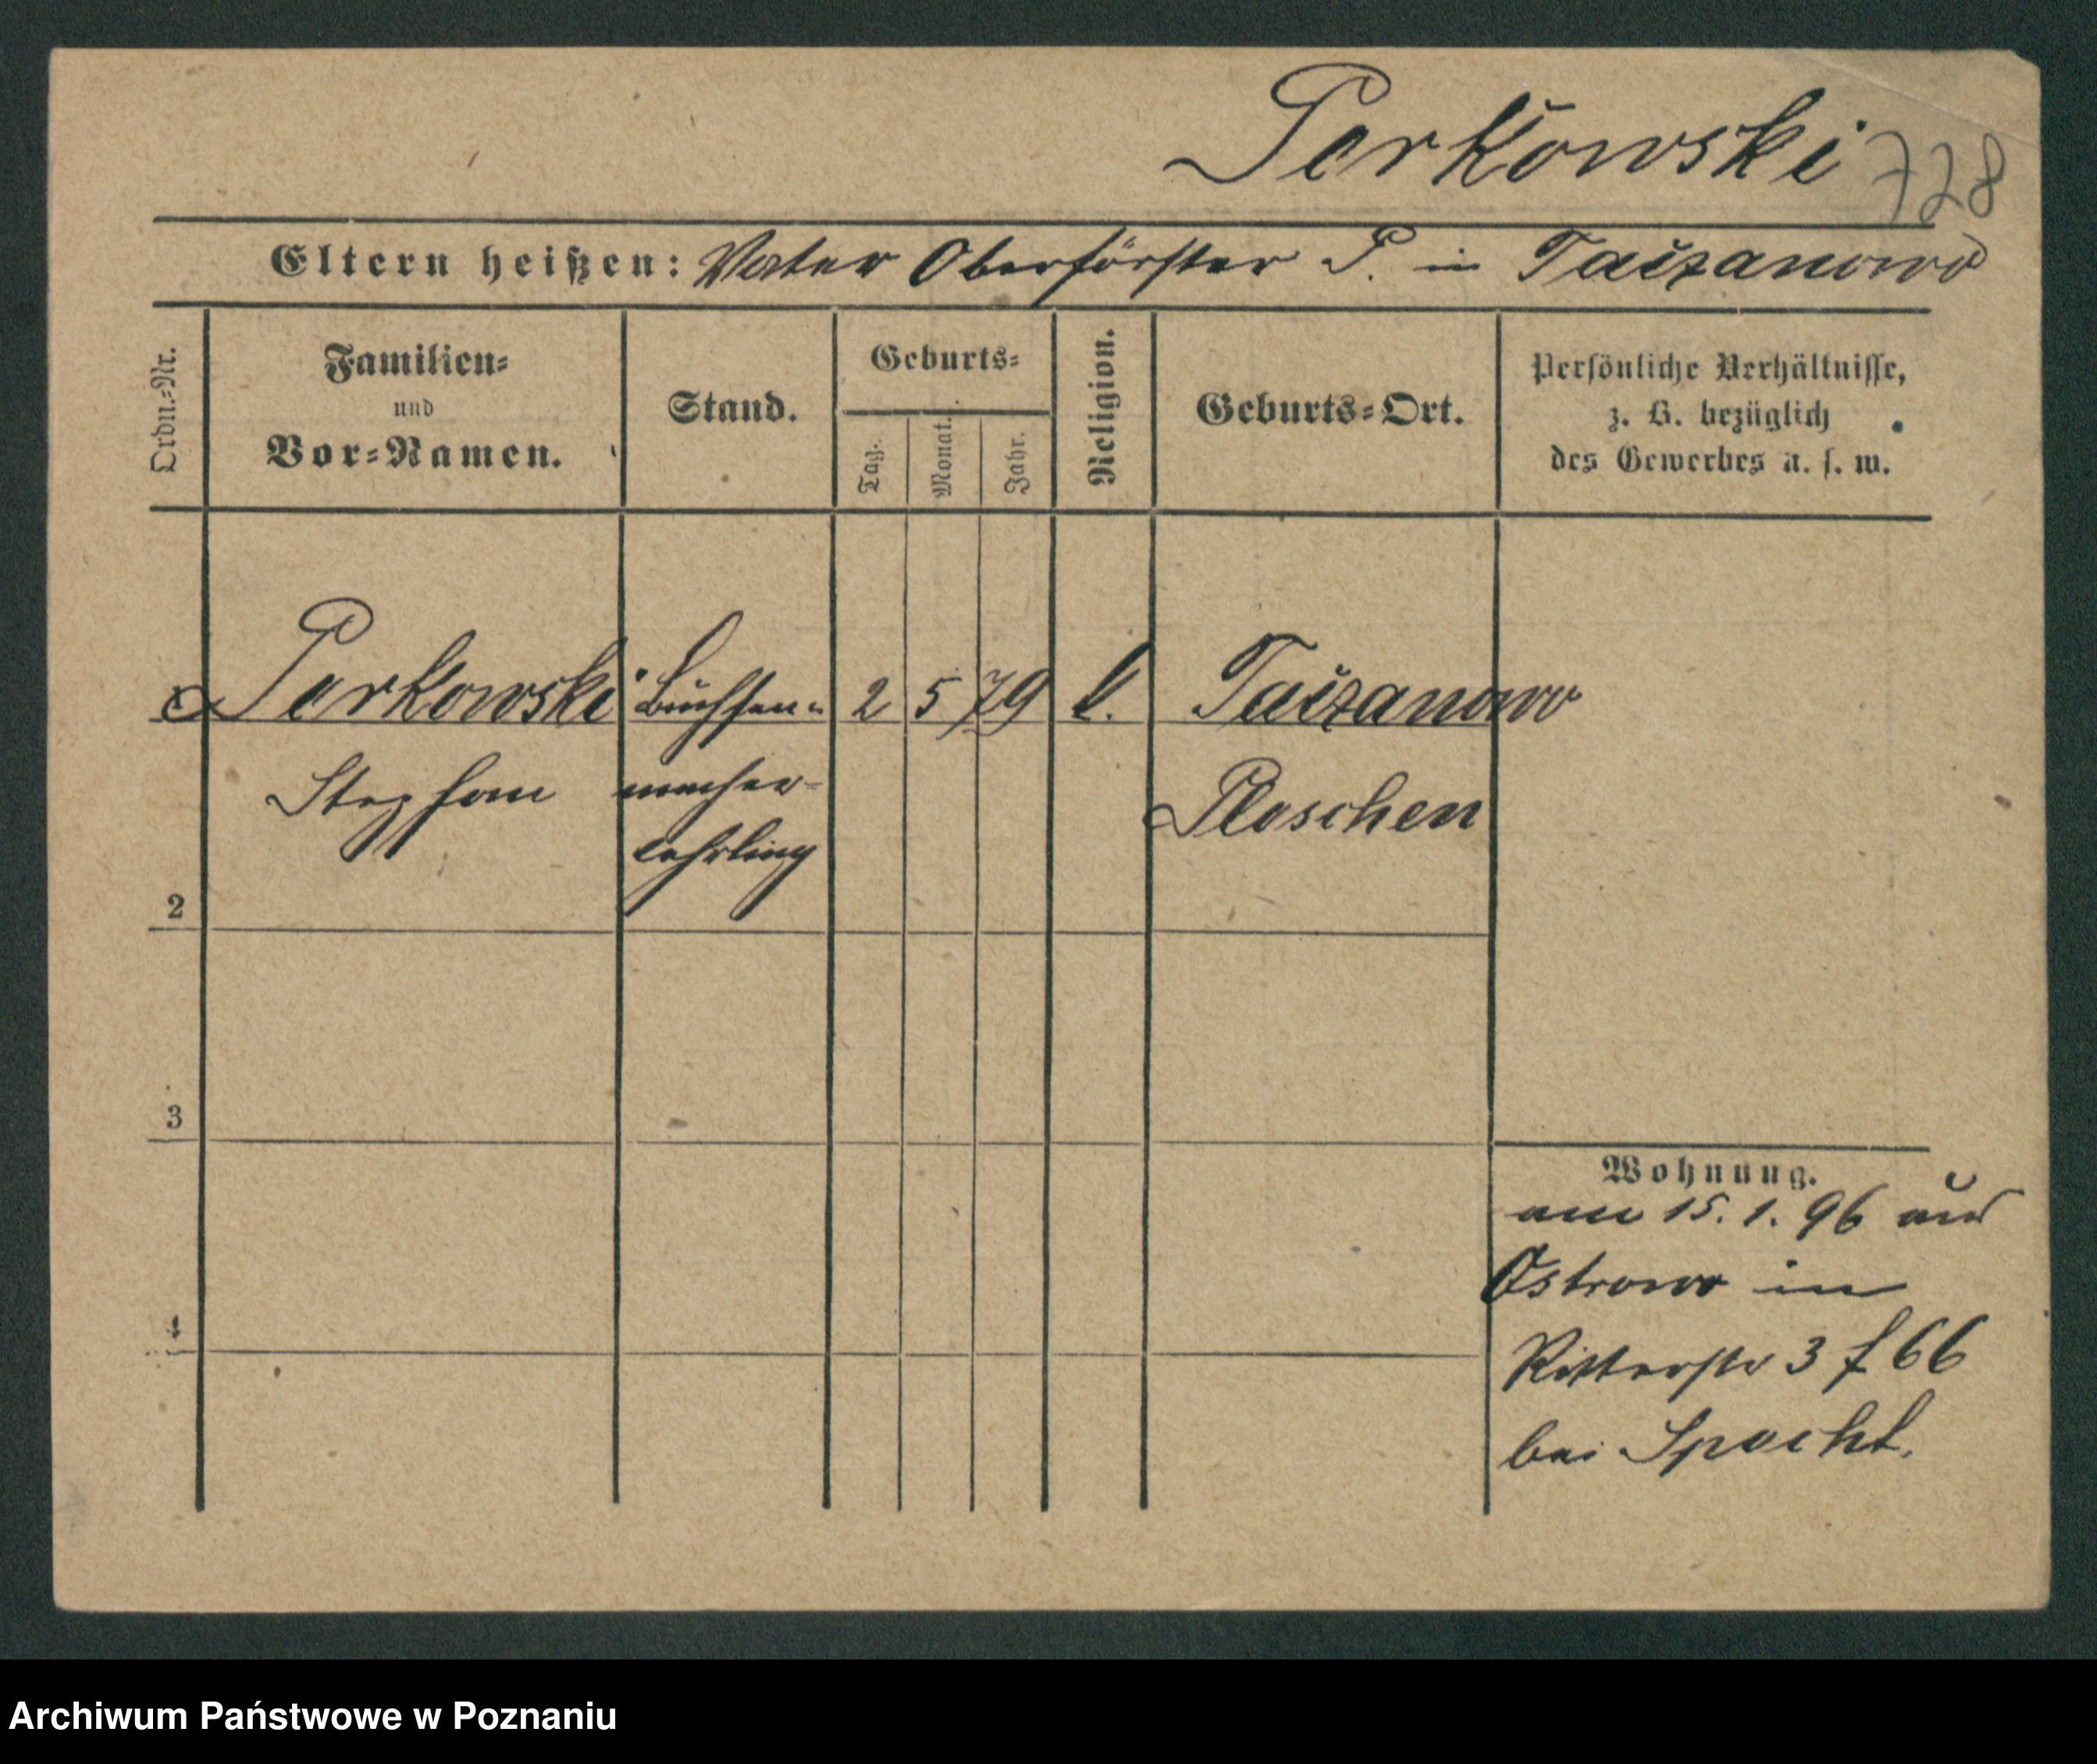 Perkowski 728
Eltern heißen: Vater Oberförster P. in Taczanowo
Ordn.-Nr.
Familien-
und
Vor-Namen.
Stand.
Geburts-
Tag.
Monat.
Jahr.
Religion.
Geburts-Ort.
Persönliche Verhältnisse,
z. B. bezüglich
des Gewerbes u. s. w.
Perkowski Büchsen- 2 5 79 k. Taczanowo
Stephan macher- Pleschen
lehrling
2
3
4
Wohnung.
am 15. 1. 96 aus
Ostrowo in
Ritterstr 3 f 66
bei Specht.
Archiwum Państwowe w Poznaniu